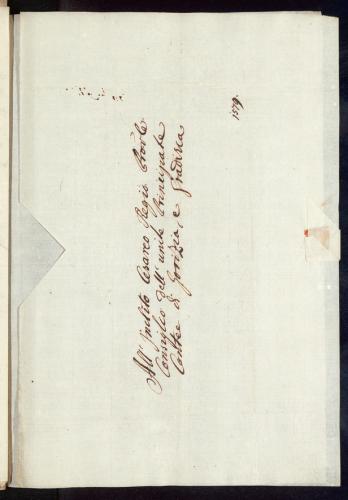 All' Inclito Cesareo Regio Prov.le
Consiglio dell' unite Principate
Contee di Gorizia, e Gradisca
1579.